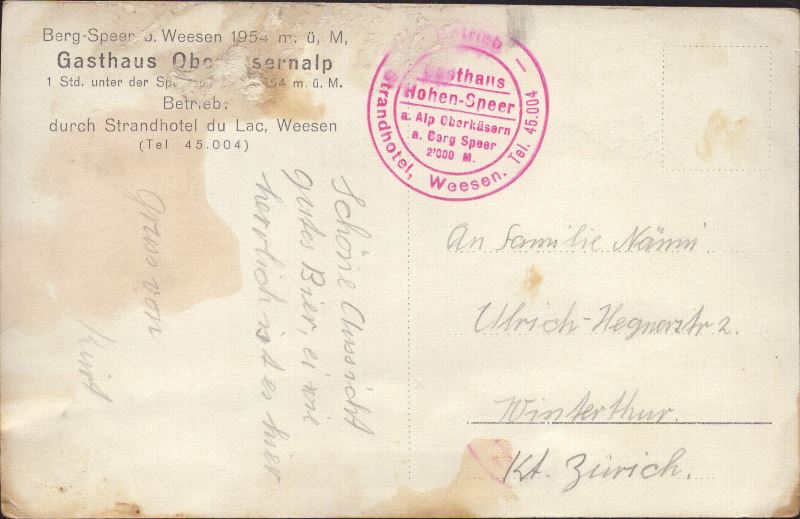 Berg-Speer b. Weesen 1954 m. ü, M,
Gasthaus Oberkäsernalp
1 Std. unter der 1954 m. ü. M.
Betrieb:
durch Strandhotel du Lac, Weesen
(Tel 45.004)
Betrieb
Strandhotel, Weesen. Tel. 45.004 —
Gasthaus
Hohen-Speer
a. Alp Oberkäsern
a. Berg Speer
2'000 M.
Schöne Aussicht
gutes Bier, ei wie
herrlich ist es hier
Gruss von
Kurt
An Familie Nänni
Ulrich-Hegnerstr 2.
Winterthur.
Kt. Zürich.